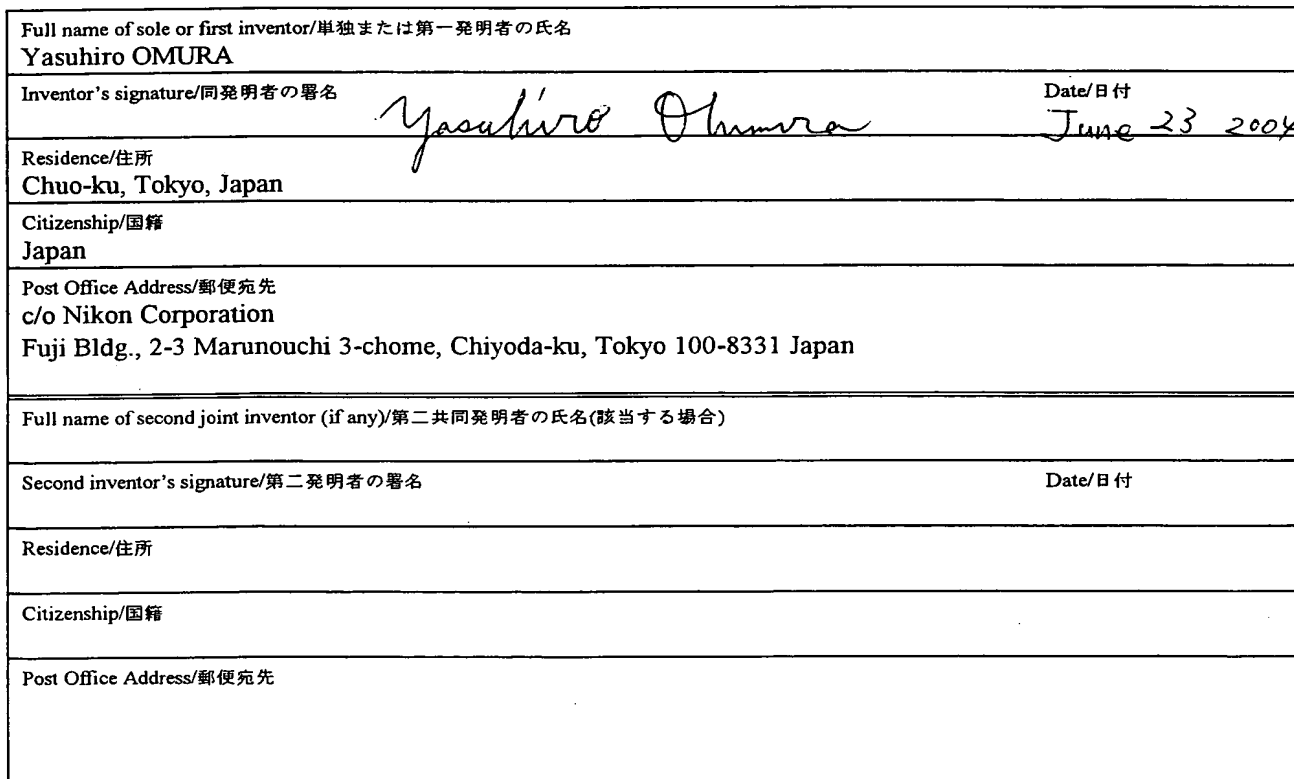 Full name of sole or first inventor/単独または第一発明者の氏名
Yasuhiro OMURA
Inventor's signature/同発明者の署名 Yasuhiro Ohmura Date/日付 June 23 2004
Residence/住所
Chuo-ku, Tokyo, Japan
Citizenship/国籍
Japan
Post Office Address/郵便宛先
c/o Nikon Corporation
Fuji Bldg., 2-3 Marunouchi 3-chome, Chiyoda-ku, Tokyo 100-8331 Japan
Full name of second joint inventor (if any)/第二共同発明者の氏名(該当する場合)
Second inventor's signature/第二発明者の署名 Date/日付
Residence/住所
Citizenship/国籍
Post Office Address/郵便宛先